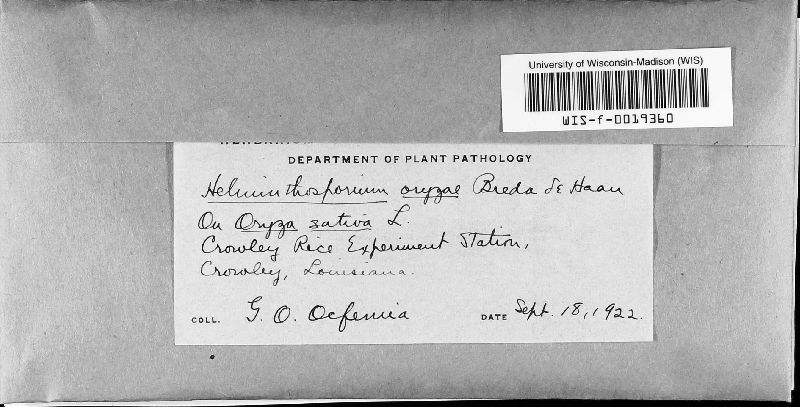 University of Wisconsin-Madison (WIS)
WIS-f-0019360
DEPARTMENT OF PLANT PATHOLOGY
Helminthosporium oryzae Breda de Haan
On Oryza sativa L.
Crowley Rice Experiment Station,
Crowley, Louisiana.
COLL. G. O. Ocfemia DATE Sept. 18, 1922.